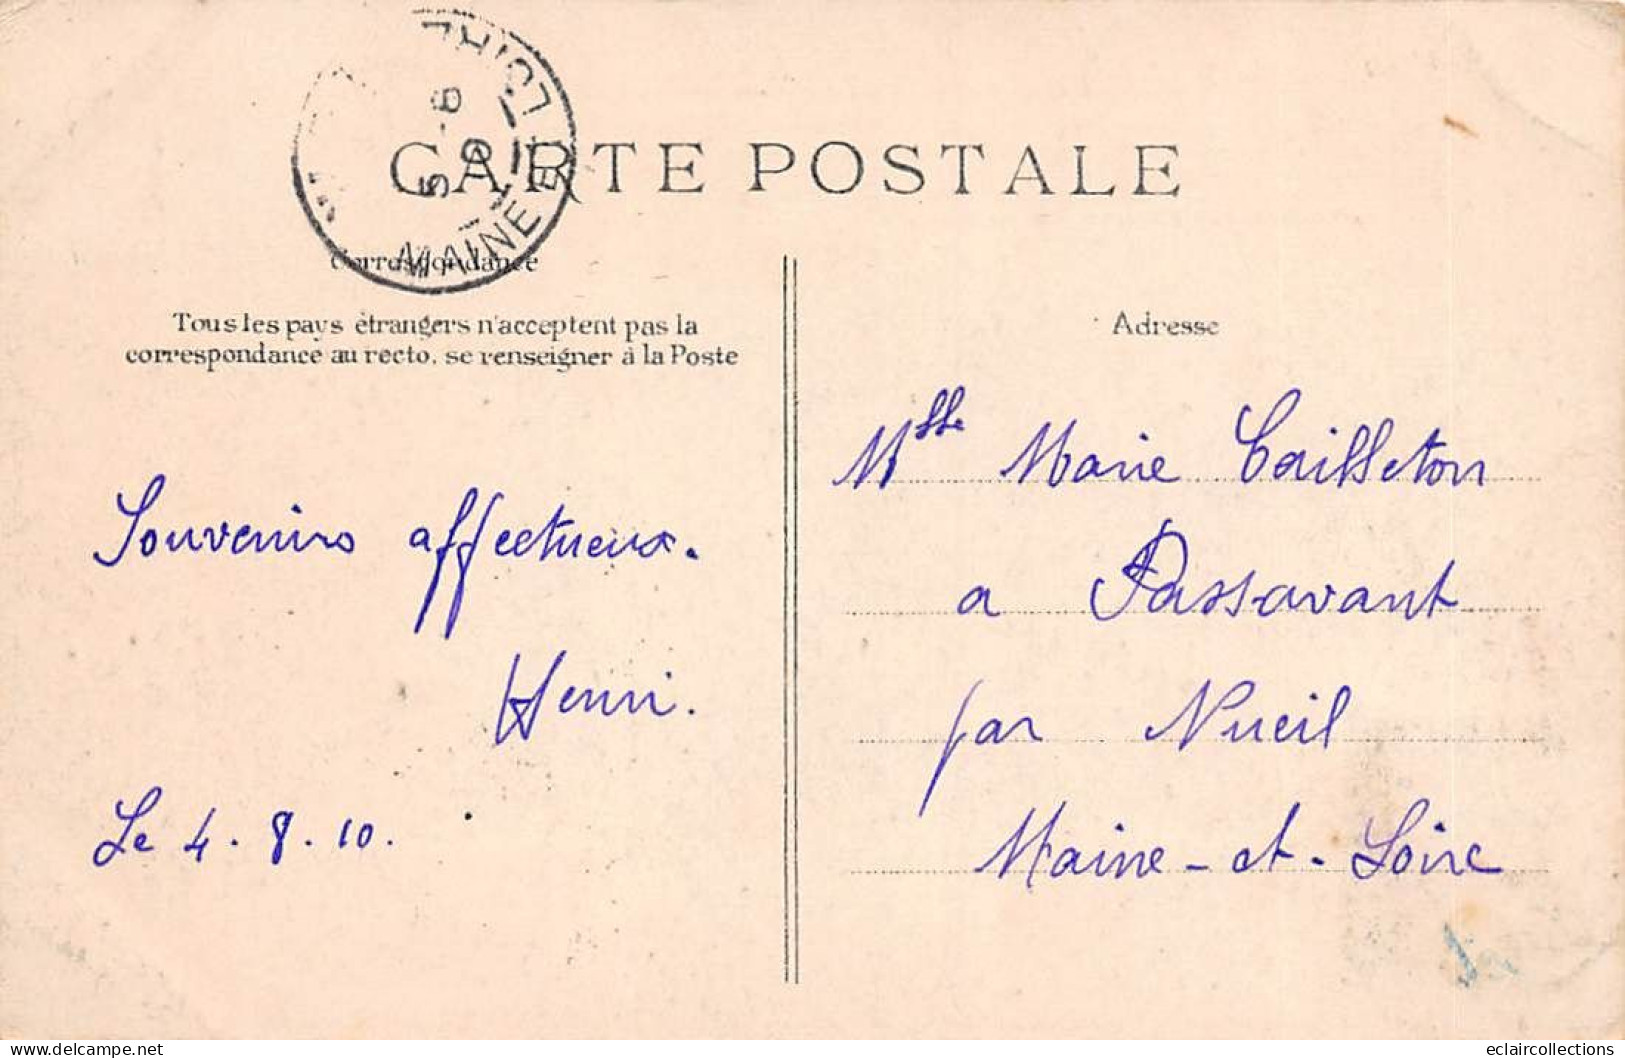 CARTE POSTALE
MAINE ET LOIRE
5-8
Correspondance
Tous les pays étrangers n'acceptent pas la
correspondance au recto, se renseigner à la Poste
Adresse
Souvenirs affectueux.
Henri.
Le 4.8.10.
Mlle Marie Cailleton
a Passavant
par Nueil
Maine-et-Loire
www.delcampe.net
eclaircollections